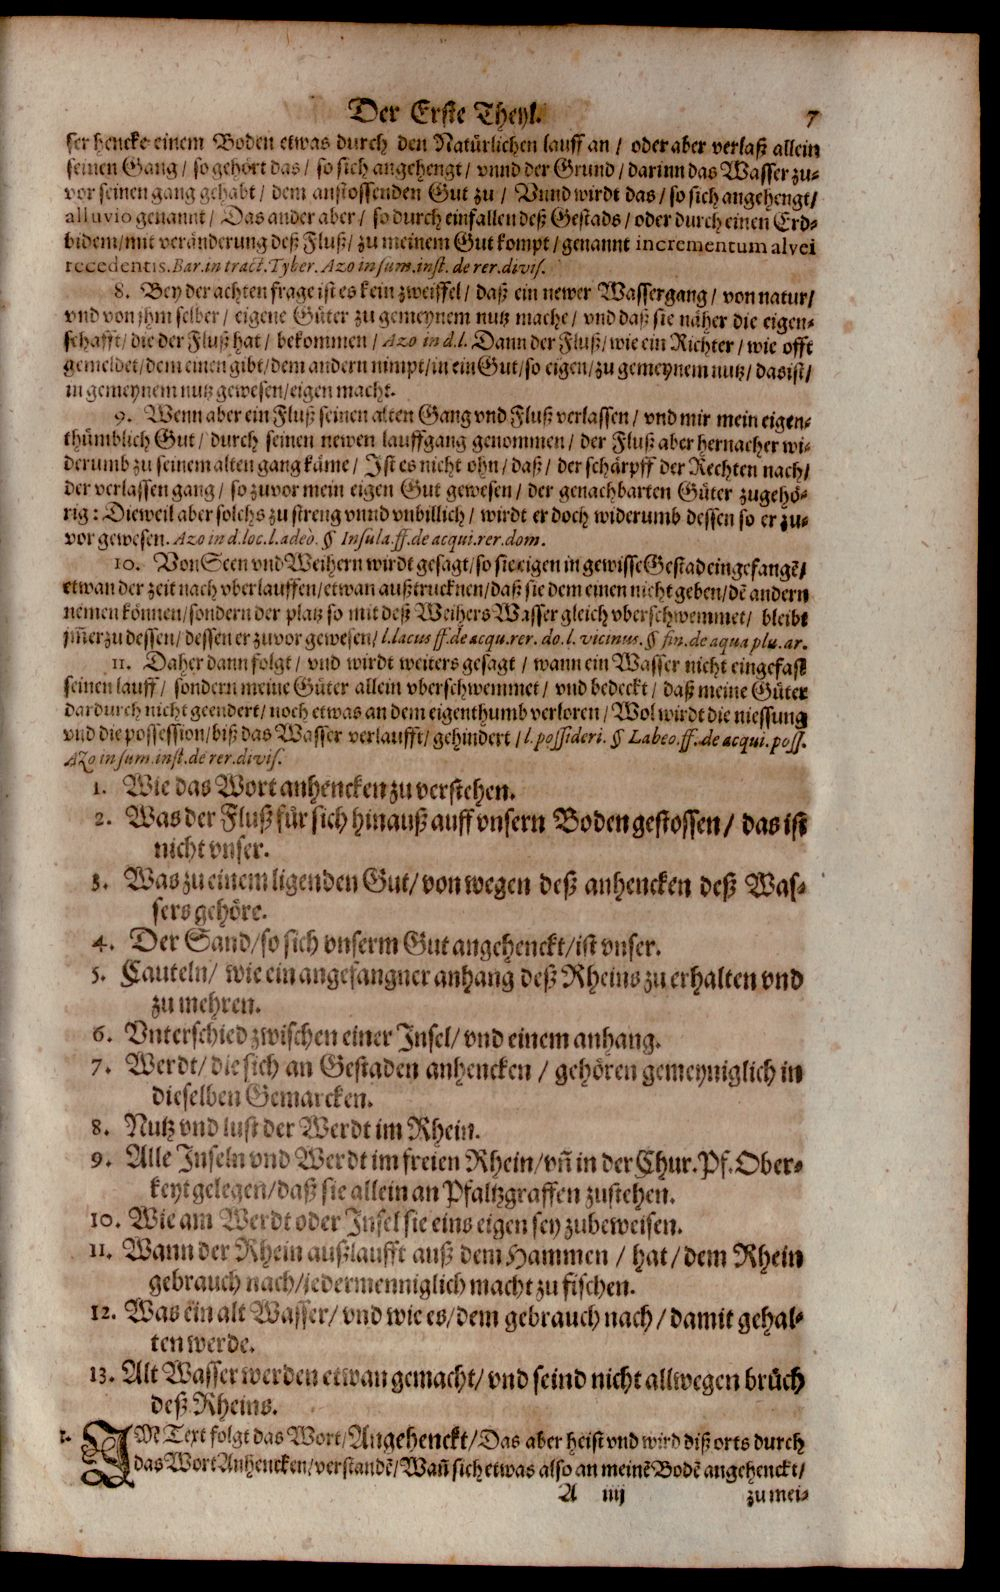 Der Erste Theyl. 7
ser hencke einem Boden etwas durch den Natürlichen lauff an / oder aber verlaß allein
seinen Gang / so gehört das / so sich angehengt / vnnd der Grund / darinn das Wasser zu-
vor seinen gang gehabt / dem anstossenden Gut zu / Vnnd wirdt das / so sich angehengt /
alluvio genannt / Das ander aber / so durch einfallen deß Gestads / oder durch einen Erd-
bidem / mit veränderung deß Fluß / zu meinem Gut kompt / genannt incrementum alvei
recedentis. Bar. in tract. Tyber. Azo in sum. inst. de rer. divis.
8. Bey der achten frage ist es kein zweiffel / daß ein newer Wassergang / von natur /
vnd von jhm selber / eigene Güter zu gemeynem nutz mache / vnd daß sie näher die eigen-
schafft / die der Fluß hat / bekommen / Azo in d. l. Dann der Fluß / wie ein Richter / wie offt
gemeldet / dem einen gibt / dem andern nimpt / in ein Gut / so eigen / zu gemeynem nutz / das ist /
in gemeynem nutz gewesen / eigen macht.
9. Wenn aber ein Fluß seinen alten Gang vnd Fluß verlassen / vnd mir mein eigen-
thümblich Gut / durch seinen newen lauffgang genommen / der Fluß aber hernacher wi-
derumb zu seinem alten gang käme / Ist es nicht ohn / daß / der schärpff der Rechten nach /
der verlassen gang / so zuvor mein eigen Gut gewesen / der genachbarten Güter zugehö-
rig : Dieweil aber solchs zu streng vnnd vnbillich / wirdt er doch widerumb dessen so er zu-
vor gewesen. Azo in d. loc. l. adeo. § Insula. ff. de acqui. rer. dom.
10. Von Seen vnd Weihern wirdt gesagt / so sie eigen in gewisse Gestad eingefangẽ /
etwan der zeit nach vberlauffen / etwan außtrucknen / daß sie dem einen nicht geben / dẽ andern
nemen können / sondern der platz so mit deß Weihers Wasser gleich vberschwemmet / bleibt
jm̃erzu dessen / dessen er zuvor gewesen / l. lacus ff. de acqu. rer. do. l. vicinus. § fin. de aqua plu. ar.
11. Daher dann folgt / vnd wirdt weiters gesagt / wann ein Wasser nicht eingefast
seinen lauff / sondern meine Güter allein vberschwemmet / vnd bedeckt / daß meine Güter
dardurch nicht geendert / noch etwas an dem eigenthumb verloren / Wol wirdt die niessung
vnd die possession / biß das Wasser verlaufft / gehindert / l. possideri. § Labeo. ff. de acqui. poss.
Azo in sum. inst. de rer. divis.
1. Wie das Wort anhencken zu verstehen.
2. Was der Fluß für sich hinauß auff vnsern Boden gestossen / das ist
nicht vnser.
3. Was zu einem ligenden Gut / von wegen deß anhencken deß Was-
sers gehöre.
4. Der Sand / so sich vnserm Gut angehenckt / ist vnser.
5. Cauteln / wie ein angefangner anhang deß Rheins zu erhalten vnd
zu mehren.
6. Vnterschied zwischen einer Insel / vnd einem anhang.
7. Werdt / die sich an Gestaden anhencken / gehören gemeyniglich in
dieselben Gemarcken.
8. Nutz vnd lust der Werdt im Rhein.
9. Alle Inseln vnd Werdt im freien Rhein / vñ in der Chur. Pf. Ober-
keyt gelegen / daß sie allein an Pfaltzgraffen zustehen.
10. Wie am Werdt oder Insel sie eins eigen sey zubeweisen.
11. Wann der Rhein außlaufft auß dem Hammen / hat / dem Rhein
gebrauch nach / jedermenniglich macht zu fischen.
12. Was ein alt Wasser / vnd wie es / dem gebrauch nach / damit gehal-
ten werde.
13. Alt Wasser werden etwan gemacht / vnd seind nicht allwegen brüch
deß Rheins.
1. IM Text folgt das Wort / Angehenckt / Das aber heist vnd wird diß orts durch
das Wort Anhencken / verstandẽ / Wañ sich etwas also an meinẽ Bodẽ angehenckt /
A iiij zu mei-